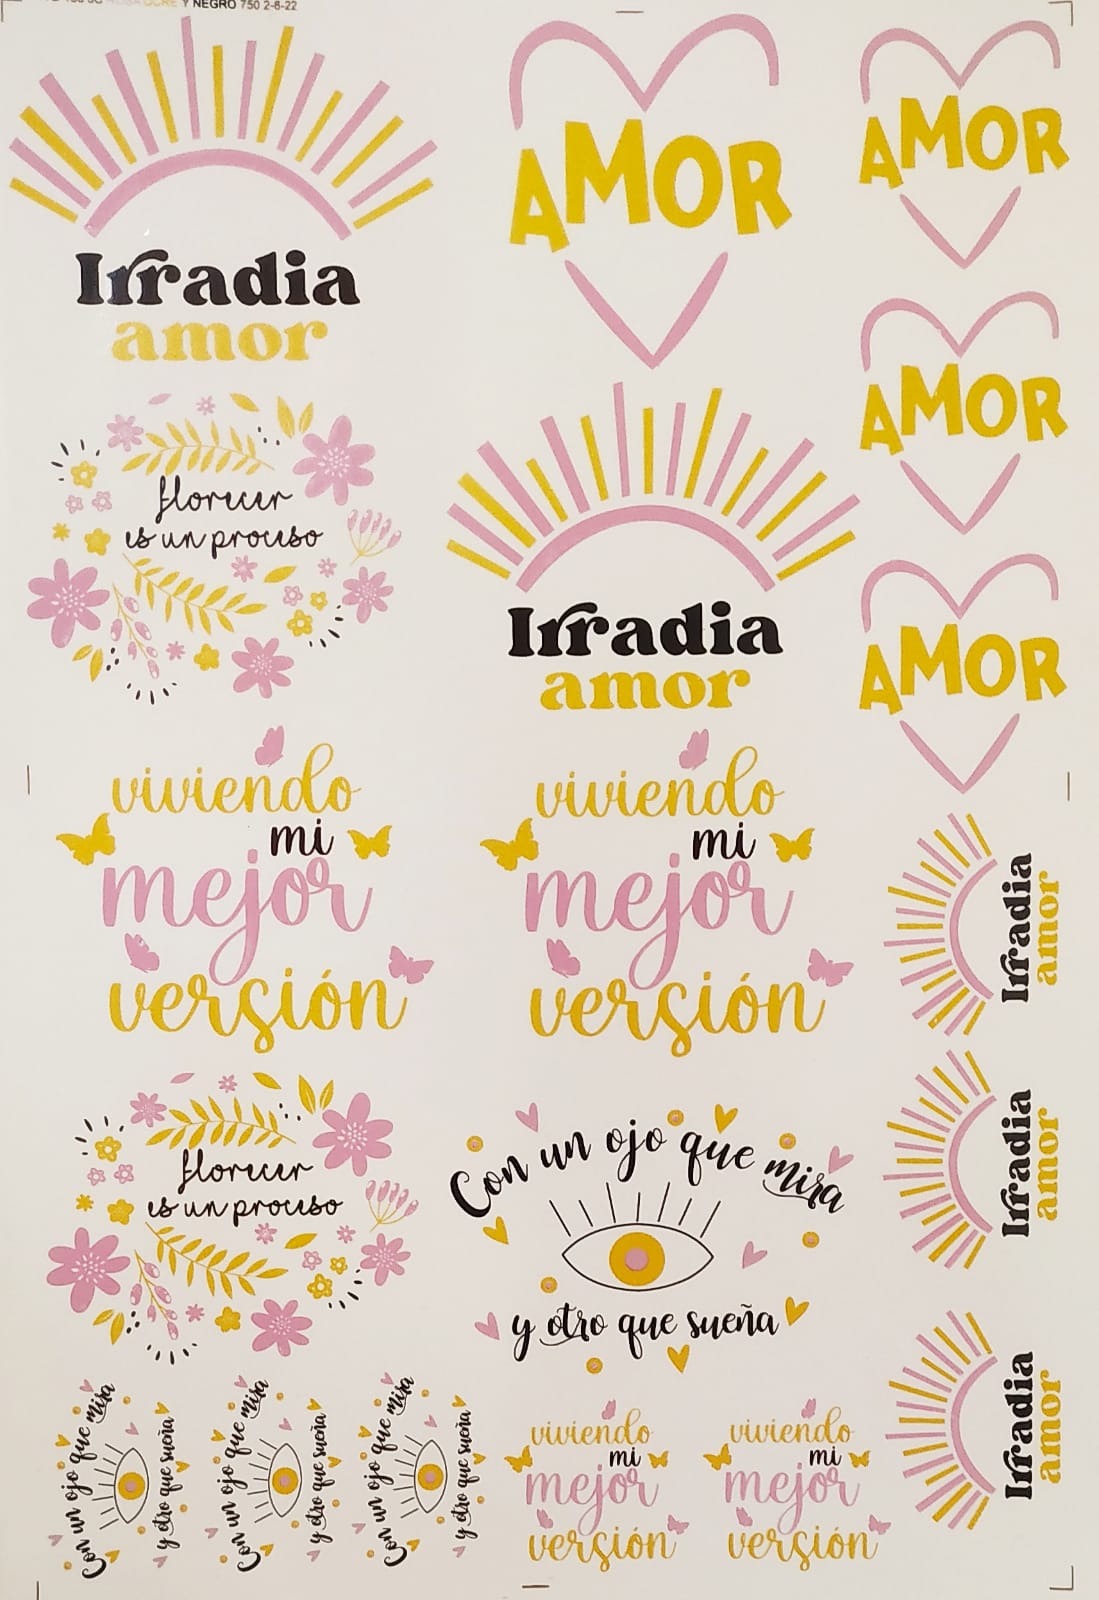 Y NEGRO 750 2-6-22
Irradia
amor
AMOR
AMOR
AMOR
AMOR
florecer
es un proceso
Irradia
amor
viviendo
mi
mejor
versión
viviendo
mi
mejor
versión
Irradia
amor
Irradia
amor
Irradia
amor
florecer
es un proceso
Con un ojo que mira
y otro que sueña
Con un ojo que mira
y otro que sueña
Con un ojo que mira
y otro que sueña
Con un ojo que mira
y otro que sueña
viviendo
mi
mejor
versión
viviendo
mi
mejor
versión